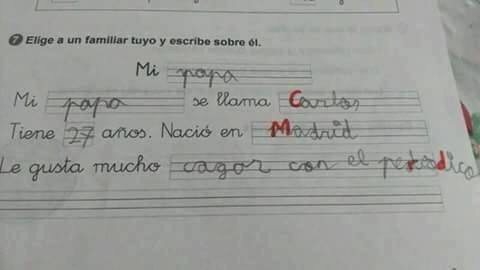 7 Elige a un familiar tuyo y escribe sobre él.
Mi papa
Mi papa se llama Carlos
Tiene 27 años. Nació en Madrid
Le gusta mucho cagar con el periódico